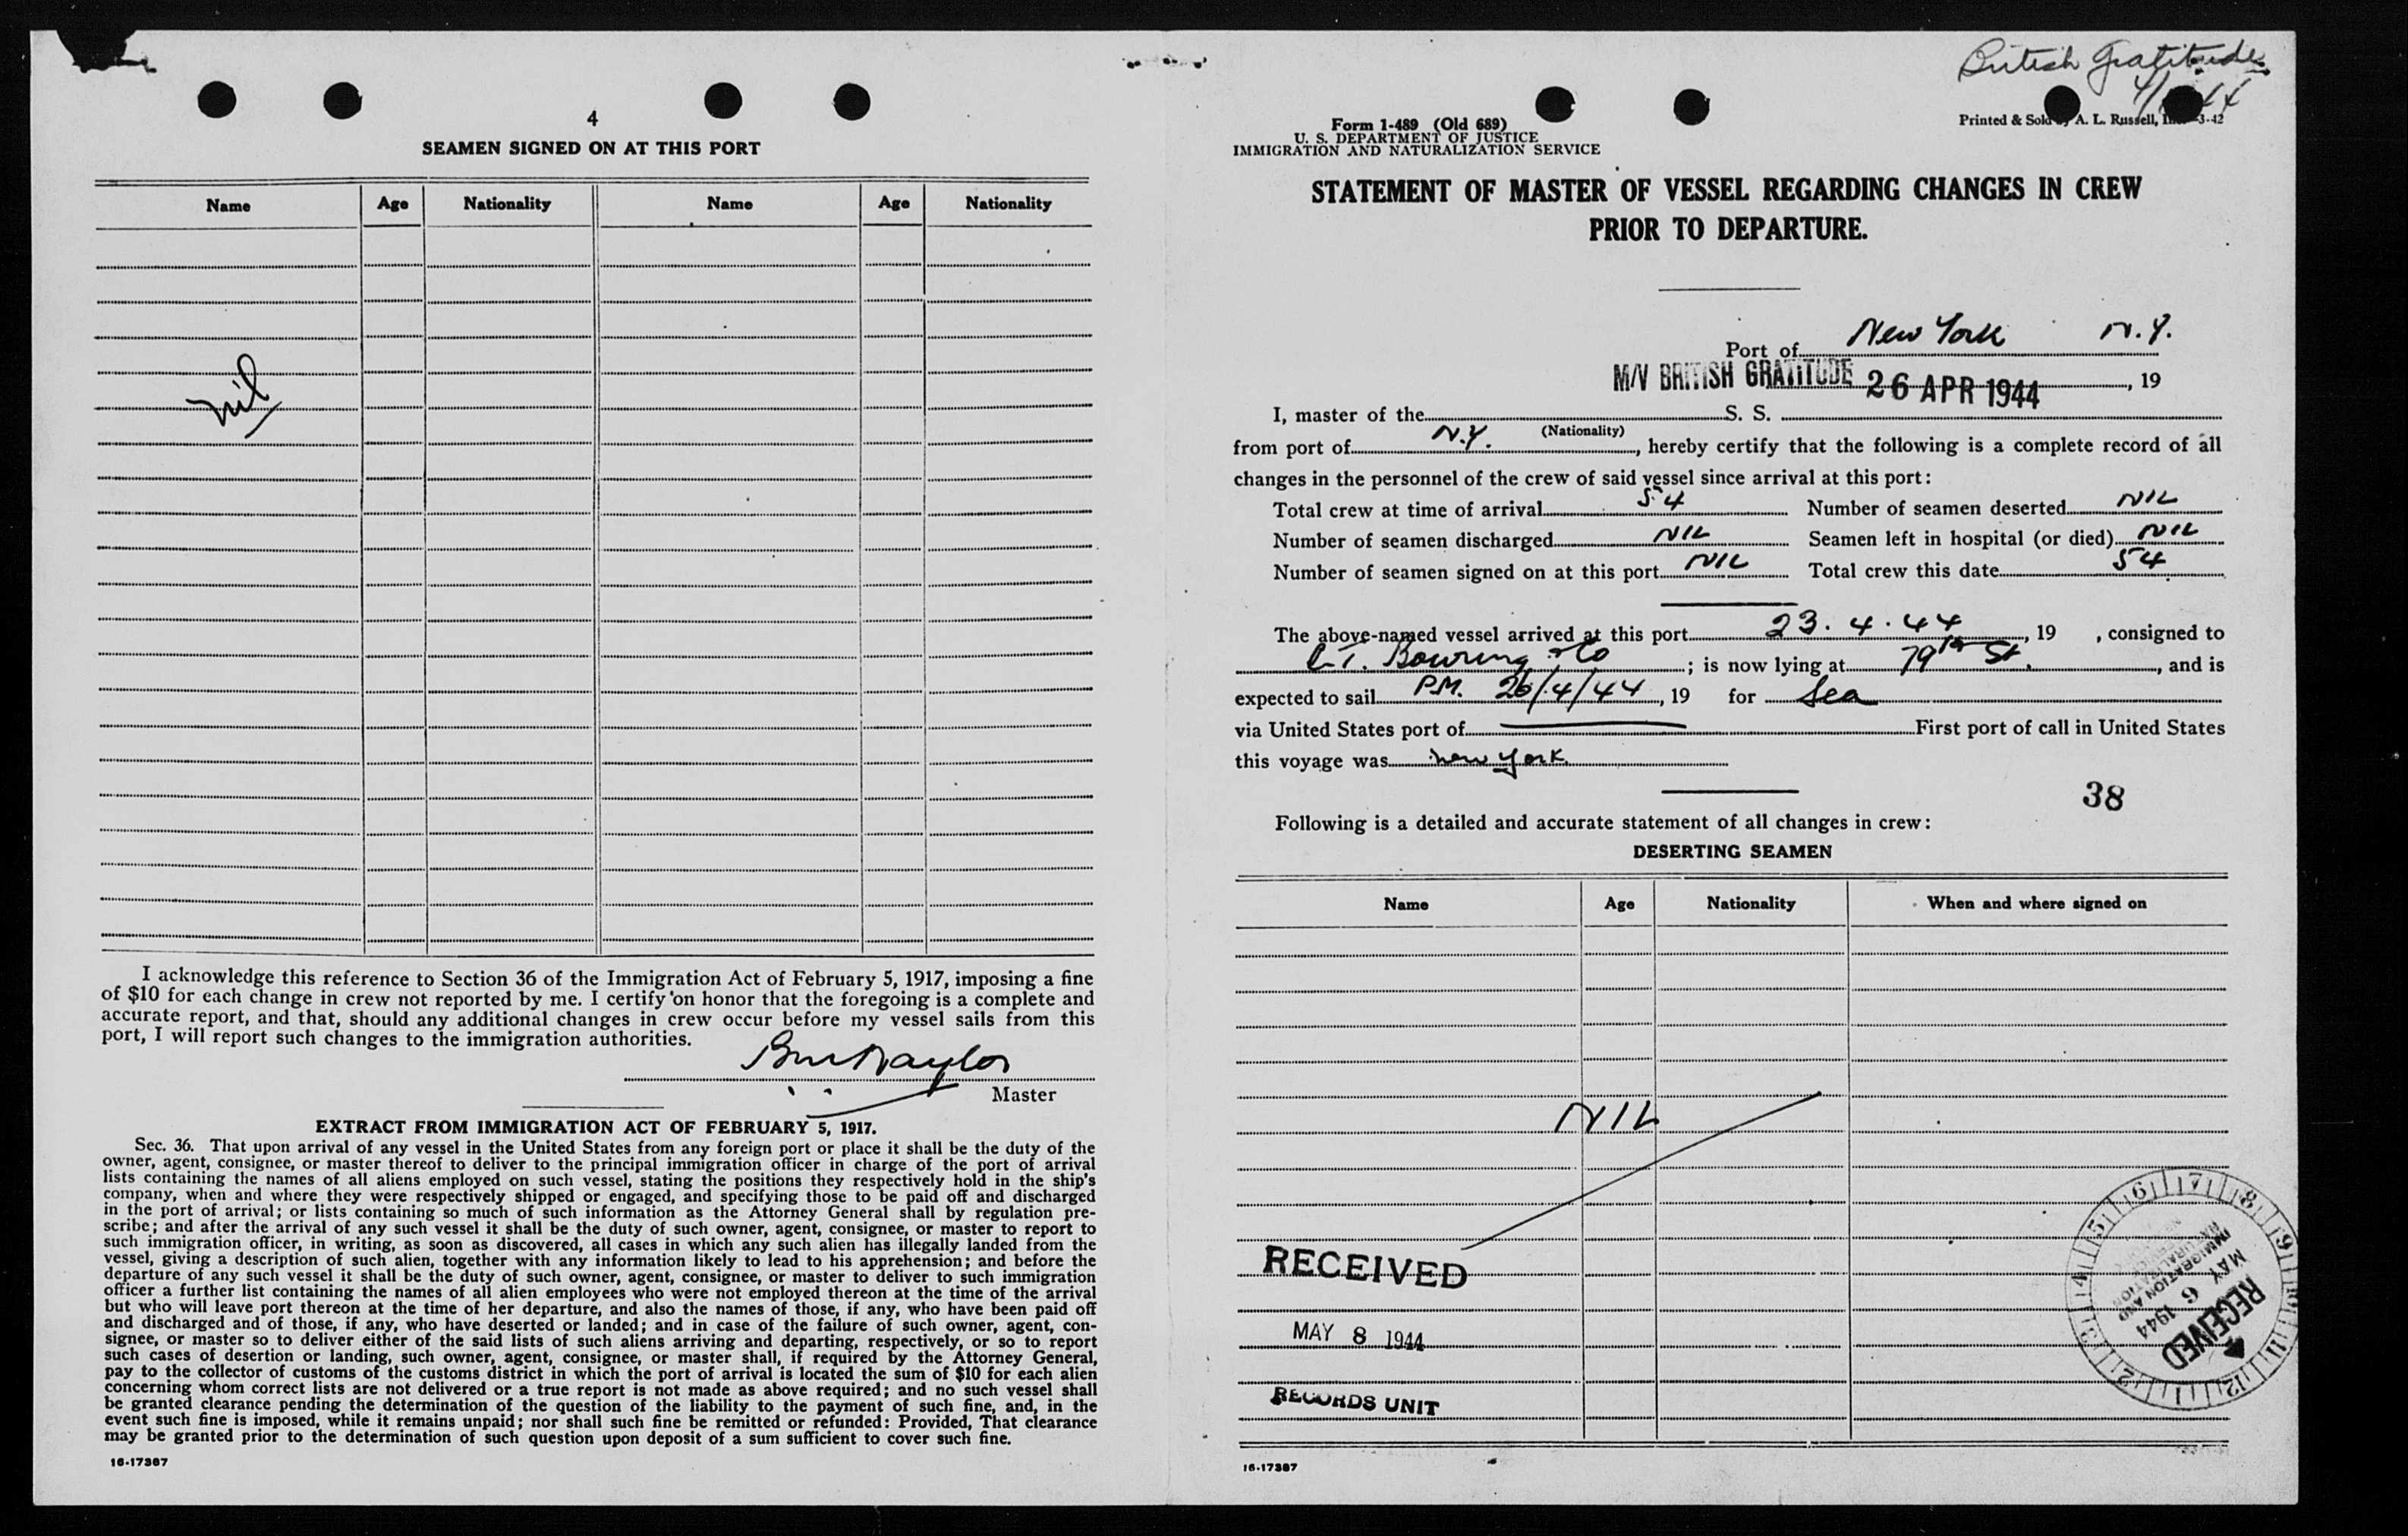 4
SEAMEN SIGNED ON AT THIS PORT
Name Age Nationality Name Age Nationality
nil
I acknowledge this reference to Section 36 of the Immigration Act of February 5, 1917, imposing a fine
of $10 for each change in crew not reported by me. I certify on honor that the foregoing is a complete and
accurate report, and that, should any additional changes in crew occur before my vessel sails from this
port, I will report such changes to the immigration authorities.
Master
EXTRACT FROM IMMIGRATION ACT OF FEBRUARY 5, 1917.
Sec. 36. That upon arrival of any vessel in the United States from any foreign port or place it shall be the duty of the
owner, agent, consignee, or master thereof to deliver to the principal immigration officer in charge of the port of arrival
lists containing the names of all aliens employed on such vessel, stating the positions they respectively hold in the ship's
company, when and where they were respectively shipped or engaged, and specifying those to be paid off and discharged
in the port of arrival; or lists containing so much of such information as the Attorney General shall by regulation pre-
scribe; and after the arrival of any such vessel it shall be the duty of such owner, agent, consignee, or master to report to
such immigration officer, in writing, as soon as discovered, all cases in which any such alien has illegally landed from the
vessel, giving a description of such alien, together with any information likely to lead to his apprehension; and before the
departure of any such vessel it shall be the duty of such owner, agent, consignee, or master to deliver to such immigration
officer a further list containing the names of all alien employees who were not employed thereon at the time of the arrival
but who will leave port thereon at the time of her departure, and also the names of those, if any, who have been paid off
and discharged and of those, if any, who have deserted or landed; and in case of the failure of such owner, agent, con-
signee, or master so to deliver either of the said lists of such aliens arriving and departing, respectively, or so to report
such cases of desertion or landing, such owner, agent, consignee, or master shall, if required by the Attorney General,
pay to the collector of customs of the customs district in which the port of arrival is located the sum of $10 for each alien
concerning whom correct lists are not delivered or a true report is not made as above required; and no such vessel shall
be granted clearance pending the determination of the question of the liability to the payment of such fine, and, in the
event such fine is imposed, while it remains unpaid; nor shall such fine be remitted or refunded: Provided, That clearance
may be granted prior to the determination of such question upon deposit of a sum sufficient to cover such fine.
16-17387
British Gratitude
Form 1-489 (Old 689)
U. S. DEPARTMENT OF JUSTICE
IMMIGRATION AND NATURALIZATION SERVICE
Printed & Sold A. L. Russell, 3-42
STATEMENT OF MASTER OF VESSEL REGARDING CHANGES IN CREW
PRIOR TO DEPARTURE.
Port of New York N.Y.
M/V BRITISH GRATITUDE 26 APR 1944, 19
I, master of the S. S.
(Nationality)
from port of N.Y., hereby certify that the following is a complete record of all
changes in the personnel of the crew of said vessel since arrival at this port:
Total crew at time of arrival 54 Number of seamen deserted NIL
Number of seamen discharged NIL Seamen left in hospital (or died) NIL
Number of seamen signed on at this port NIL Total crew this date 54
The above-named vessel arrived at this port 23.4.44, 19 , consigned to
C.T. Bowring & Co; is now lying at 79th St., and is
expected to sail P.M. 26/4/44, 19 for Sea
via United States port of First port of call in United States
this voyage was new york
38
Following is a detailed and accurate statement of all changes in crew:
DESERTING SEAMEN
Name Age Nationality When and where signed on
NIL
RECEIVED
MAY 8 1944
RECORDS UNIT
RECEIVED
MAY 6 1944
IMMIGRATION AND
16-17387